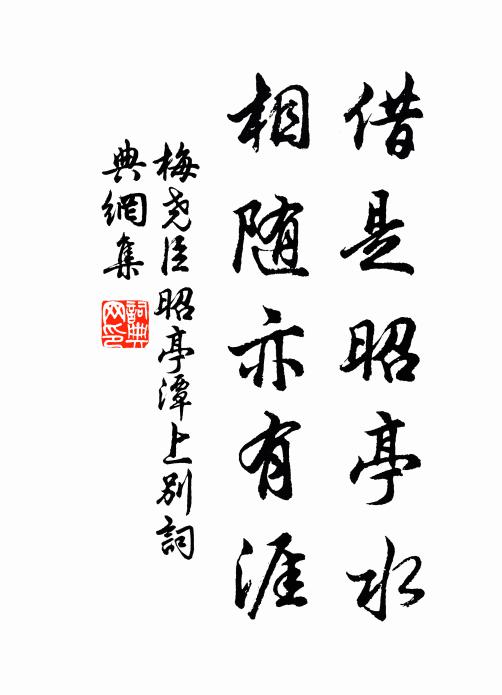 借是昭亭水
相随亦有涯
梅尧臣昭亭潭上别詞
典網集
詞典網印